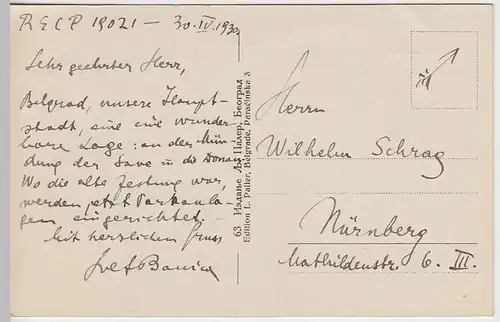 RECP 19021 — 30.IV.1930.
Sehr geehrter Herr,
Belgrad, unsere Haupt-
stadt, eine eine wunder-
bare Lage: an der Mün-
dung der Save in die Donau.
Wo die alte Festung war,
werden jetzt Parkanla-
gen eingerichtet. —
Mit herzlichen Gruss
63 Издање Љ. Палер, Београд
Edition L. Paller, Belgrade, Paračinska 5
Herrn
Wilhelm Schrag
Nürnberg
Mathildenstr. 6. III.